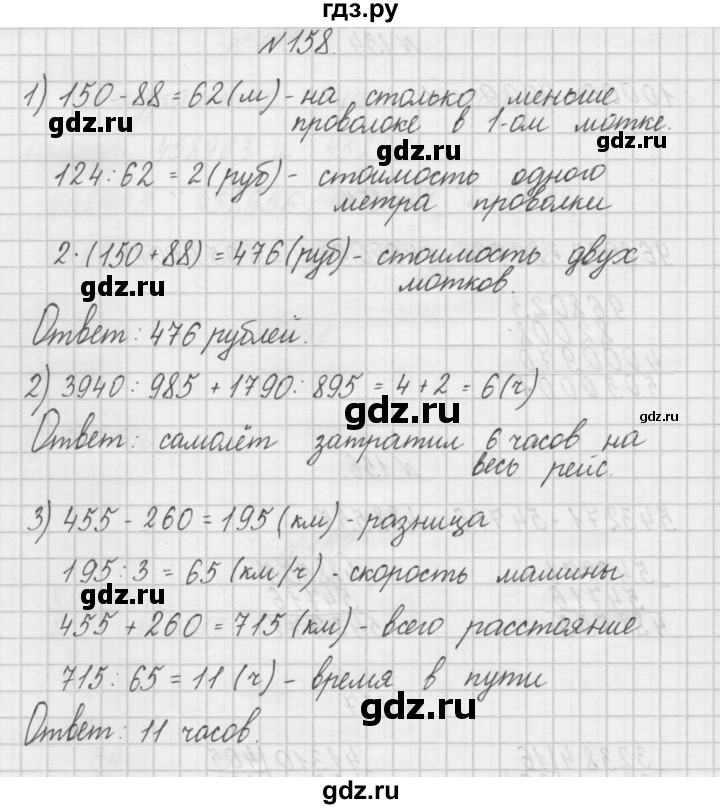 гдз.ру
№158.
1) 150-88=62(м)-на столько меньше
gdz.ru
проволоке в 1-ом мотке.
gdz.ru
gdz.ru
124:62=2(руб)-стоимость одного
метра проволки
2·(150+88)=476(руб)-стоимость двух
gdz.ru
мотков.
Ответ: 476 рублей.
gdz.ru
2) 3940:985+1790:895=4+2=6(ч)
gdz.ru
gdz.ru
Ответ: самолёт затратил 6 часов на
весь рейс.
gdz.ru
3) 455-260=195(км)-разница
195:3=65(км/ч)-скорость машины
gdz.ru
gdz.ru
455+260=715(км)-всего расстояние
715:65=11(ч)-время в пути
gdz.ru
Ответ: 11 часов.
gdz.ru